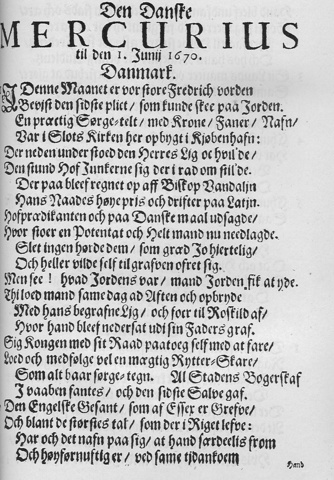 Den Danske
MERCURIUS
til den 1. Junij 1670.
Danmark.
I Denne Maanet er vor store Fredrich vorden
Bevijst den sidste plict/ som kunde skee paa Jorden.
En prætig Sørge-telt/ med Krone/ Faner/ Nafn/
Var i Slots Kirken her opbygt i Kjøbenhafn:
Der neden under stoed den Herres Lig oc hvil'de/
Den stund Hof Junkerne sig der i rad om stil'de.
Der paa bleef regnet op aff Biskop Vandalin
Hans Naades høye pris och drifter paa Latjn.
Hofprædikanten och paa Danske maal udsagde/
Hvor stoer en Potentat och Helt mand nu nedlagde.
Slet ingen hørde dem/ som græd Jo hjertelig/
Och heller vilde self til grafven ofret sig.
Men see! hvad Jordens var/ mand Jorden fik at yde.
Thi loed mand same dag ad Aften och opbryde
Med hans begrafne Lig/ och foer til Roskild af/
Hvor hand bleef nedersat udi sin Faders graf.
Sig Kongen med sit Raad paatoeg self med at fare/
Loed och medfølge vel en mægtig Rytter-Skare/
Som alt baar sørge-tegn. Al Stadens Bogerskaf
I vaaben fantes/ och den sidste Salve gaf.
Den Engelske Gesant/ som af Essex er Grefve/
Och blant de størstes tal/ som der i Riget lefve:
Har och det nafn paa sig/ at hand særdeelis from
Och høyfornuftig er/ ved same tidankoem
Hand